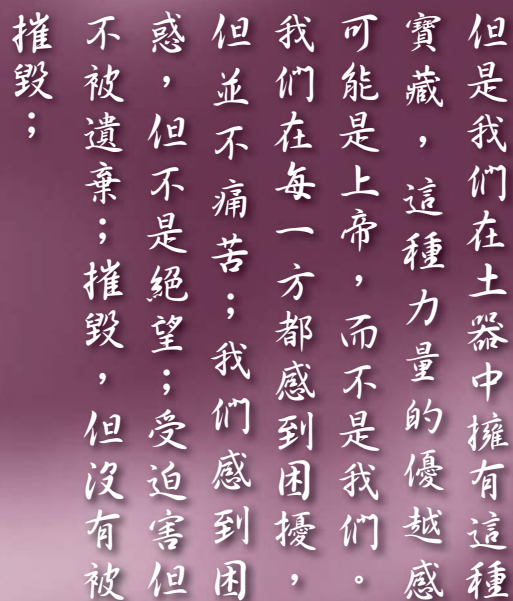 但是我們在土器中擁有這種
寶藏，這種力量的優越感
可能是上帝，而不是我們。
我們在每一方都感到困擾，
但並不痛苦；我們感到困
惑，但不是絕望；受迫害但
不被遺棄；摧毀，但沒有被
摧毀；